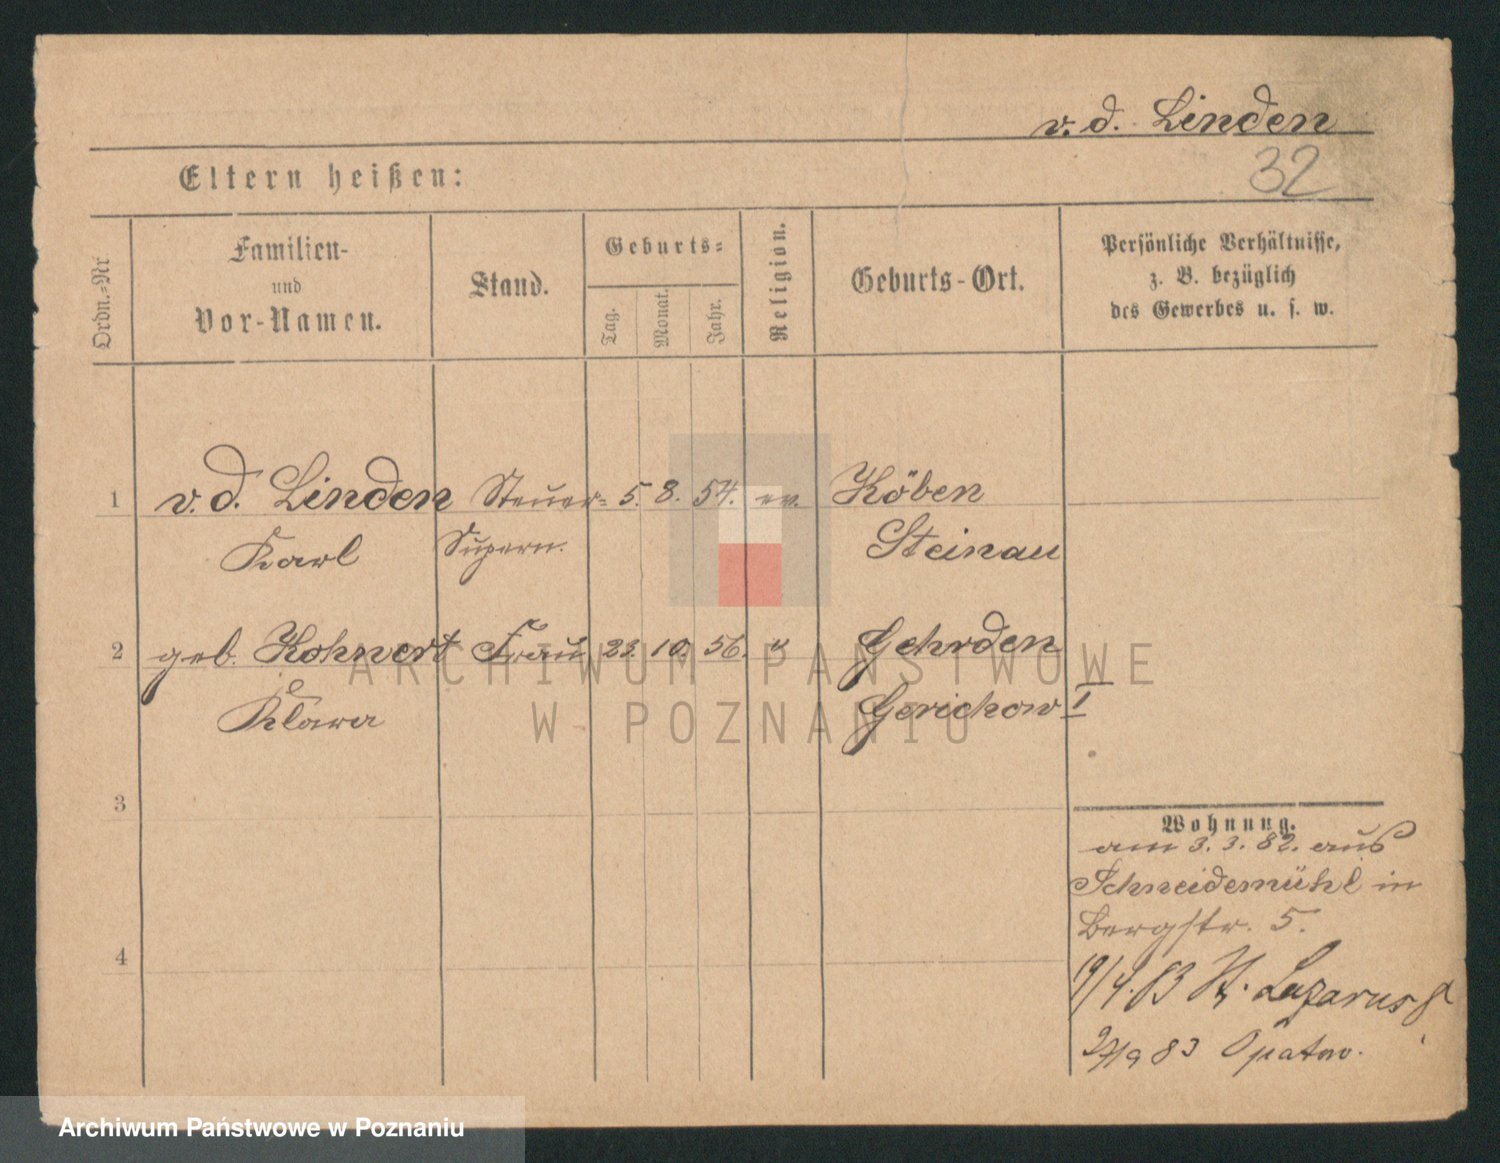 v. d. Linden
32
Eltern heißen:
Ordn.-Nr
Familien-
und
Vor-Namen.
Stand.
Geburts-
Tag.
Monat.
Jahr.
Religion.
Geburts-Ort.
Persönliche Verhältnisse,
z. B. bezüglich
des Gewerbes u. s. w.
1 v. d. Linden Steuer- 5. 8. 54. ev. Köben
Karl Supern. Steinau
2 geb. Kohnert Frau 23. 10. 56. " Gehrden
Klara Gerichow I
3
Wohnung.
am 3. 3. 82. aus
Schneidemühl in
Bergstr. 5.
4
19/4. 83 St. Lazarus 8
83 Opatow.
ARCHIWUM PAŃSTWOWE
W POZNANIU
Archiwum Państwowe w Poznaniu